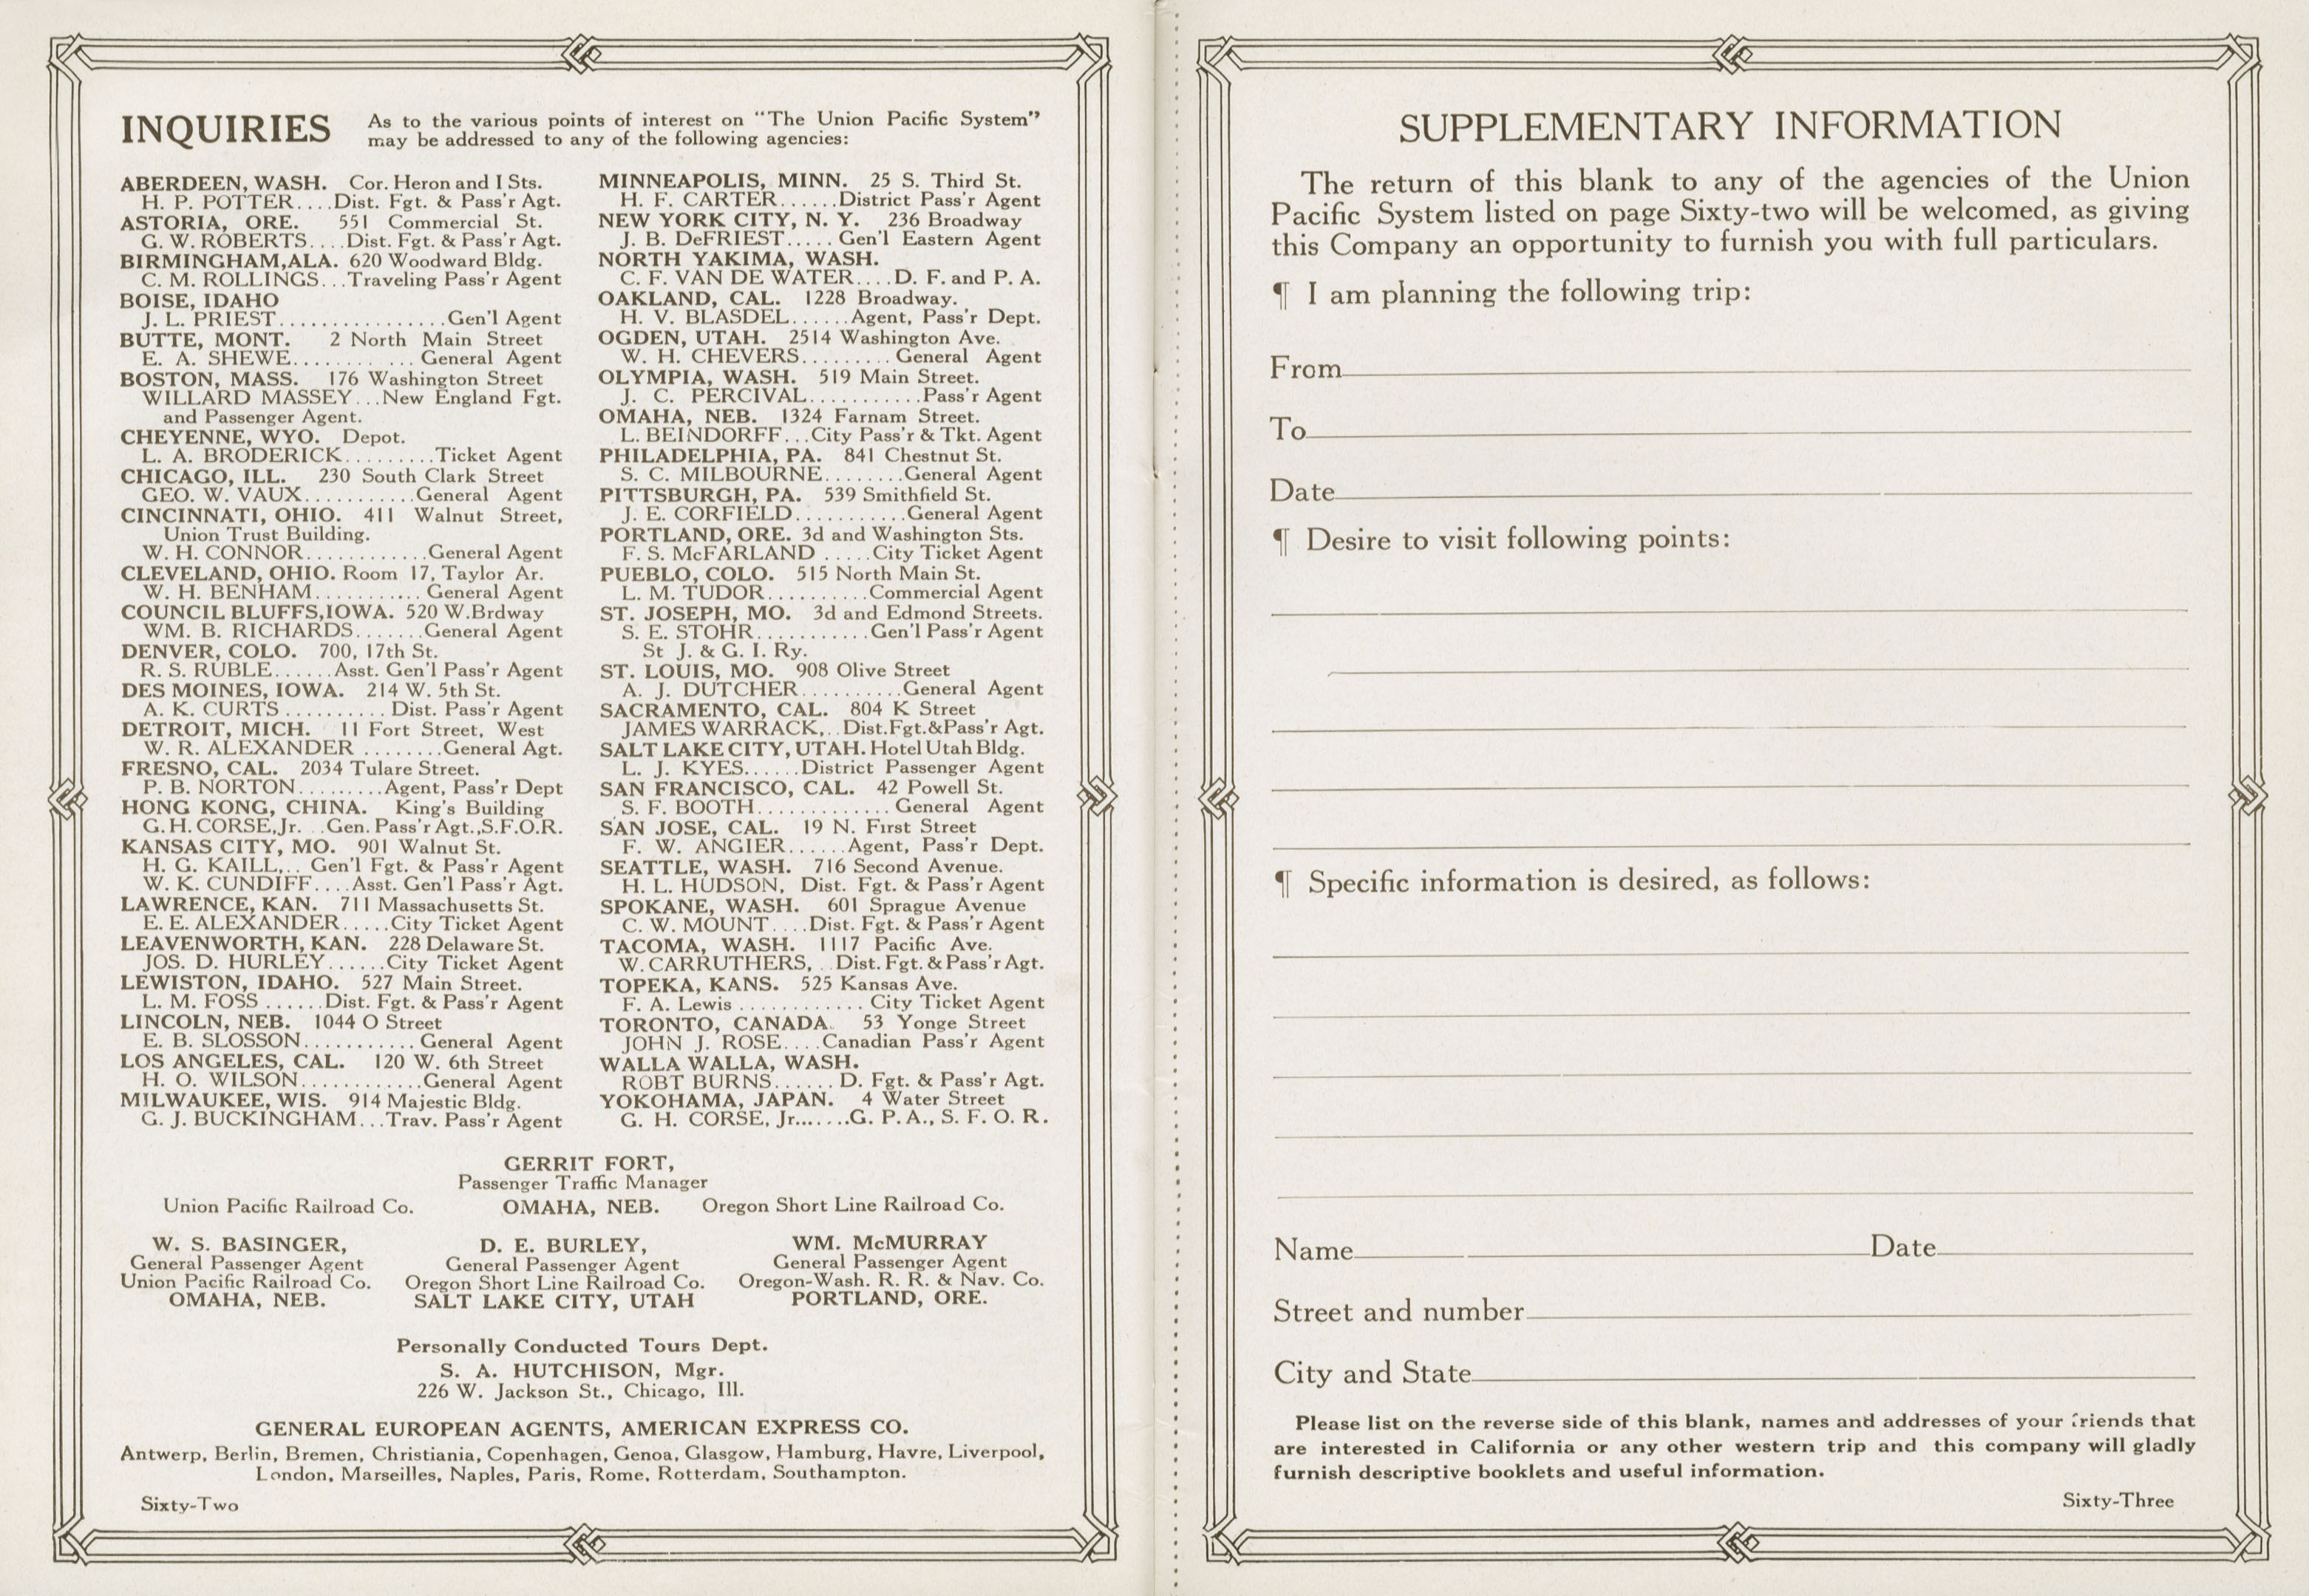 INQUIRIES
As to the various points of interest on "The Union Pacific System"
may be addressed to any of the following agencies:
ABERDEEN, WASH. Cor. Heron and I Sts.
H. P. POTTER....Dist. Fgt. & Pass'r Agt.
ASTORIA, ORE. 551 Commercial St.
G. W. ROBERTS....Dist. Fgt. & Pass'r Agt.
BIRMINGHAM, ALA. 620 Woodward Bldg.
C. M. ROLLINGS...Traveling Pass'r Agent
BOISE, IDAHO
J. L. PRIEST................Gen'l Agent
BUTTE, MONT. 2 North Main Street
E. A. SHEWE............General Agent
BOSTON, MASS. 176 Washington Street
WILLARD MASSEY...New England Fgt.
and Passenger Agent.
CHEYENNE, WYO. Depot.
L. A. BRODERICK.........Ticket Agent
CHICAGO, ILL. 230 South Clark Street
GEO. W. VAUX...........General Agent
CINCINNATI, OHIO. 411 Walnut Street,
Union Trust Building.
W. H. CONNOR............General Agent
CLEVELAND, OHIO. Room 17, Taylor Ar.
W. H. BENHAM...........General Agent
COUNCIL BLUFFS, IOWA. 520 W. Brdway
WM. B. RICHARDS.......General Agent
DENVER, COLO. 700, 17th St.
R. S. RUBLE......Asst. Gen'l Pass'r Agent
DES MOINES, IOWA. 214 W. 5th St.
A. K. CURTS..........Dist. Pass'r Agent
DETROIT, MICH. 11 Fort Street, West
W. R. ALEXANDER........General Agt.
FRESNO, CAL. 2034 Tulare Street.
P. B. NORTON.........Agent, Pass'r Dept
HONG KONG, CHINA. King's Building
G. H. CORSE, Jr. ..Gen. Pass'r Agt., S. F. O. R.
KANSAS CITY, MO. 901 Walnut St.
H. G. KAILL,.. Gen'l Fgt. & Pass'r Agent
W. K. CUNDIFF....Asst. Gen'l Pass'r Agt.
LAWRENCE, KAN. 711 Massachusetts St.
E. E. ALEXANDER.....City Ticket Agent
LEAVENWORTH, KAN. 228 Delaware St.
JOS. D. HURLEY......City Ticket Agent
LEWISTON, IDAHO. 527 Main Street.
L. M. FOSS......Dist. Fgt. & Pass'r Agent
LINCOLN, NEB. 1044 O Street
E. B. SLOSSON...........General Agent
LOS ANGELES, CAL. 120 W. 6th Street
H. O. WILSON............General Agent
MILWAUKEE, WIS. 914 Majestic Bldg.
G. J. BUCKINGHAM...Trav. Pass'r Agent
MINNEAPOLIS, MINN. 25 S. Third St.
H. F. CARTER......District Pass'r Agent
NEW YORK CITY, N. Y. 236 Broadway
J. B. DeFRIEST.....Gen'l Eastern Agent
NORTH YAKIMA, WASH.
C. F. VAN DE WATER....D. F. and P. A.
OAKLAND, CAL. 1228 Broadway.
H. V. BLASDEL......Agent, Pass'r Dept.
OGDEN, UTAH. 2514 Washington Ave.
W. H. CHEVERS.........General Agent
OLYMPIA, WASH. 519 Main Street.
J. C. PERCIVAL...........Pass'r Agent
OMAHA, NEB. 1324 Farnam Street.
L. BEINDORFF...City Pass'r & Tkt. Agent
PHILADELPHIA, PA. 841 Chestnut St.
S. C. MILBOURNE........General Agent
PITTSBURGH, PA. 539 Smithfield St.
J. E. CORFIELD...........General Agent
PORTLAND, ORE. 3d and Washington Sts.
F. S. McFARLAND.....City Ticket Agent
PUEBLO, COLO. 515 North Main St.
L. M. TUDOR..........Commercial Agent
ST. JOSEPH, MO. 3d and Edmond Streets.
S. E. STOHR...........Gen'l Pass'r Agent
St J. & G. I. Ry.
ST. LOUIS, MO. 908 Olive Street
A. J. DUTCHER..........General Agent
SACRAMENTO, CAL. 804 K Street
JAMES WARRACK,..Dist. Fgt. & Pass'r Agt.
SALT LAKE CITY, UTAH. Hotel Utah Bldg.
L. J. KYES......District Passenger Agent
SAN FRANCISCO, CAL. 42 Powell St.
S. F. BOOTH.............General Agent
SAN JOSE, CAL. 19 N. First Street
F. W. ANGIER......Agent, Pass'r Dept.
SEATTLE, WASH. 716 Second Avenue.
H. L. HUDSON, Dist. Fgt. & Pass'r Agent
SPOKANE, WASH. 601 Sprague Avenue
C. W. MOUNT....Dist. Fgt. & Pass'r Agent
TACOMA, WASH. 1117 Pacific Ave.
W. CARRUTHERS,..Dist. Fgt. & Pass'r Agt.
TOPEKA, KANS. 525 Kansas Ave.
F. A. Lewis............City Ticket Agent
TORONTO, CANADA. 53 Yonge Street
JOHN J. ROSE....Canadian Pass'r Agent
WALLA WALLA, WASH.
ROBT BURNS......D. Fgt. & Pass'r Agt.
YOKOHAMA, JAPAN. 4 Water Street
G. H. CORSE, Jr.......G. P. A., S. F. O. R.
GERRIT FORT,
Passenger Traffic Manager
Union Pacific Railroad Co. OMAHA, NEB. Oregon Short Line Railroad Co.
W. S. BASINGER,
General Passenger Agent
Union Pacific Railroad Co.
OMAHA, NEB.
D. E. BURLEY,
General Passenger Agent
Oregon Short Line Railroad Co.
SALT LAKE CITY, UTAH
WM. McMURRAY
General Passenger Agent
Oregon-Wash. R. R. & Nav. Co.
PORTLAND, ORE.
Personally Conducted Tours Dept.
S. A. HUTCHISON, Mgr.
226 W. Jackson St., Chicago, Ill.
GENERAL EUROPEAN AGENTS, AMERICAN EXPRESS CO.
Antwerp, Berlin, Bremen, Christiania, Copenhagen, Genoa, Glasgow, Hamburg, Havre, Liverpool,
London, Marseilles, Naples, Paris, Rome, Rotterdam, Southampton.
Sixty-Two
SUPPLEMENTARY INFORMATION
The return of this blank to any of the agencies of the Union
Pacific System listed on page Sixty-two will be welcomed, as giving
this Company an opportunity to furnish you with full particulars.
¶ I am planning the following trip:
From
To
Date
¶ Desire to visit following points:
¶ Specific information is desired, as follows:
Name Date
Street and number
City and State
Please list on the reverse side of this blank, names and addresses of your friends that
are interested in California or any other western trip and this company will gladly
furnish descriptive booklets and useful information.
Sixty-Three